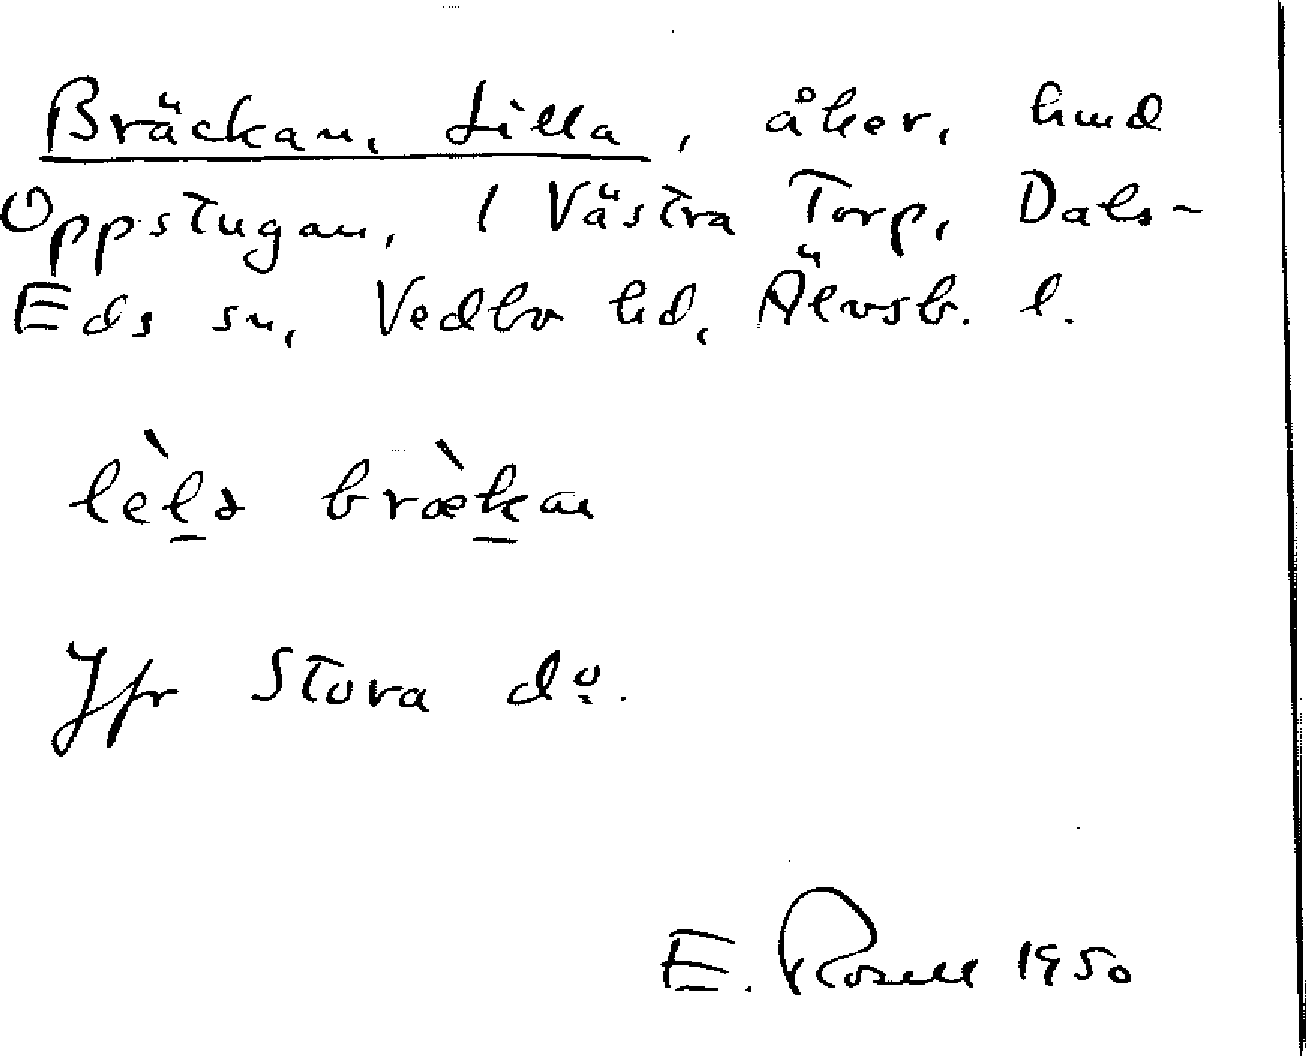 Bräckan, Lilla, åker, hmd
Uppstugan, 1 Västra Torp, Dals-
Eds sn, Vedbo hd, Älvsb. l.
lèl̲ə bræ̀k̲an
Jfr Stora dº.
E. Rosell 1950